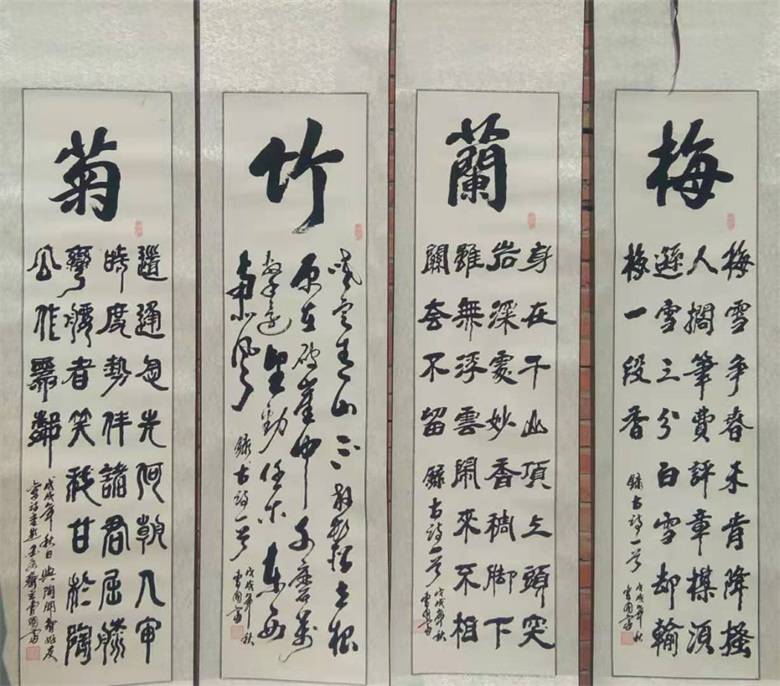 梅
梅雪争春未肯降搔
人擱筆費評章楳須
遜雪三分白雪却輸
梅一段香
録古詩一首
戊戌年秋
蘭
身在千山頂上頭突
岩深處妙香稠脚下
雖無浮雲鬧來不相
關去不留
録古詩一首
戊戌年秋
竹
咬定青山不放鬆立根
原在破崖中千磨萬
擊還堅勁任尔東西
南北風
録古詩一首
戊戌年秋
菊
道通 先何朝入
時度勢伴諸君屈膝
彎腰者笑我甘於陶
公作 鄰
戊戌年秋日與陶